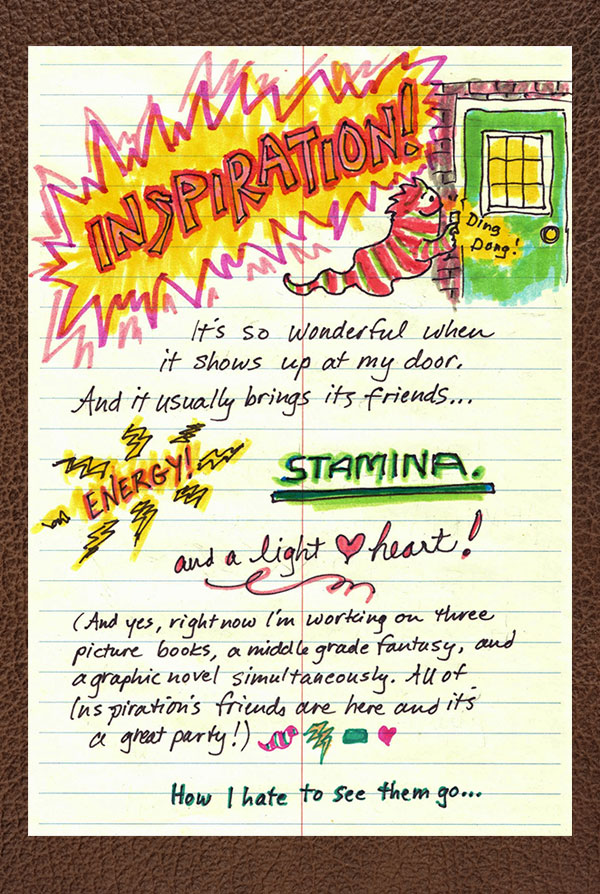 INSPIRATION!
Ding
Dong!
It's so wonderful when
it shows up at my door.
And it usually brings its friends...
ENERGY!
STAMINA.
and a light heart!
(And yes, right now I'm working on three
picture books, a middle grade fantasy, and
a graphic novel simultaneously. All of
Inspiration's friends are here and it's
a great party!)
How I hate to see them go...